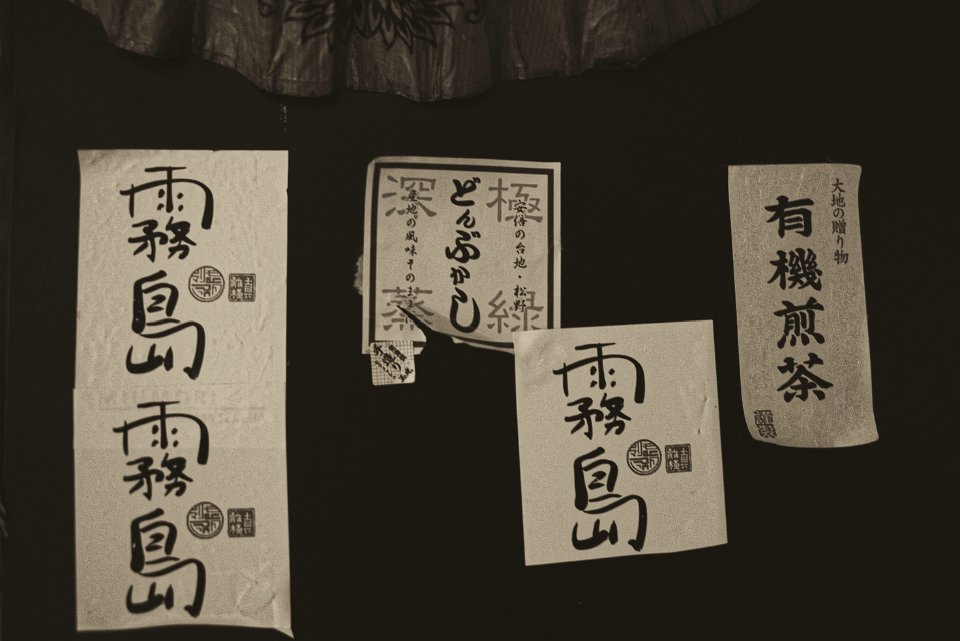 霧島
霧島
深蒸
産地の風味そのまま
どんぶかし
極緑
安倍の台地・松野
霧島
大地の贈り物
有機煎茶